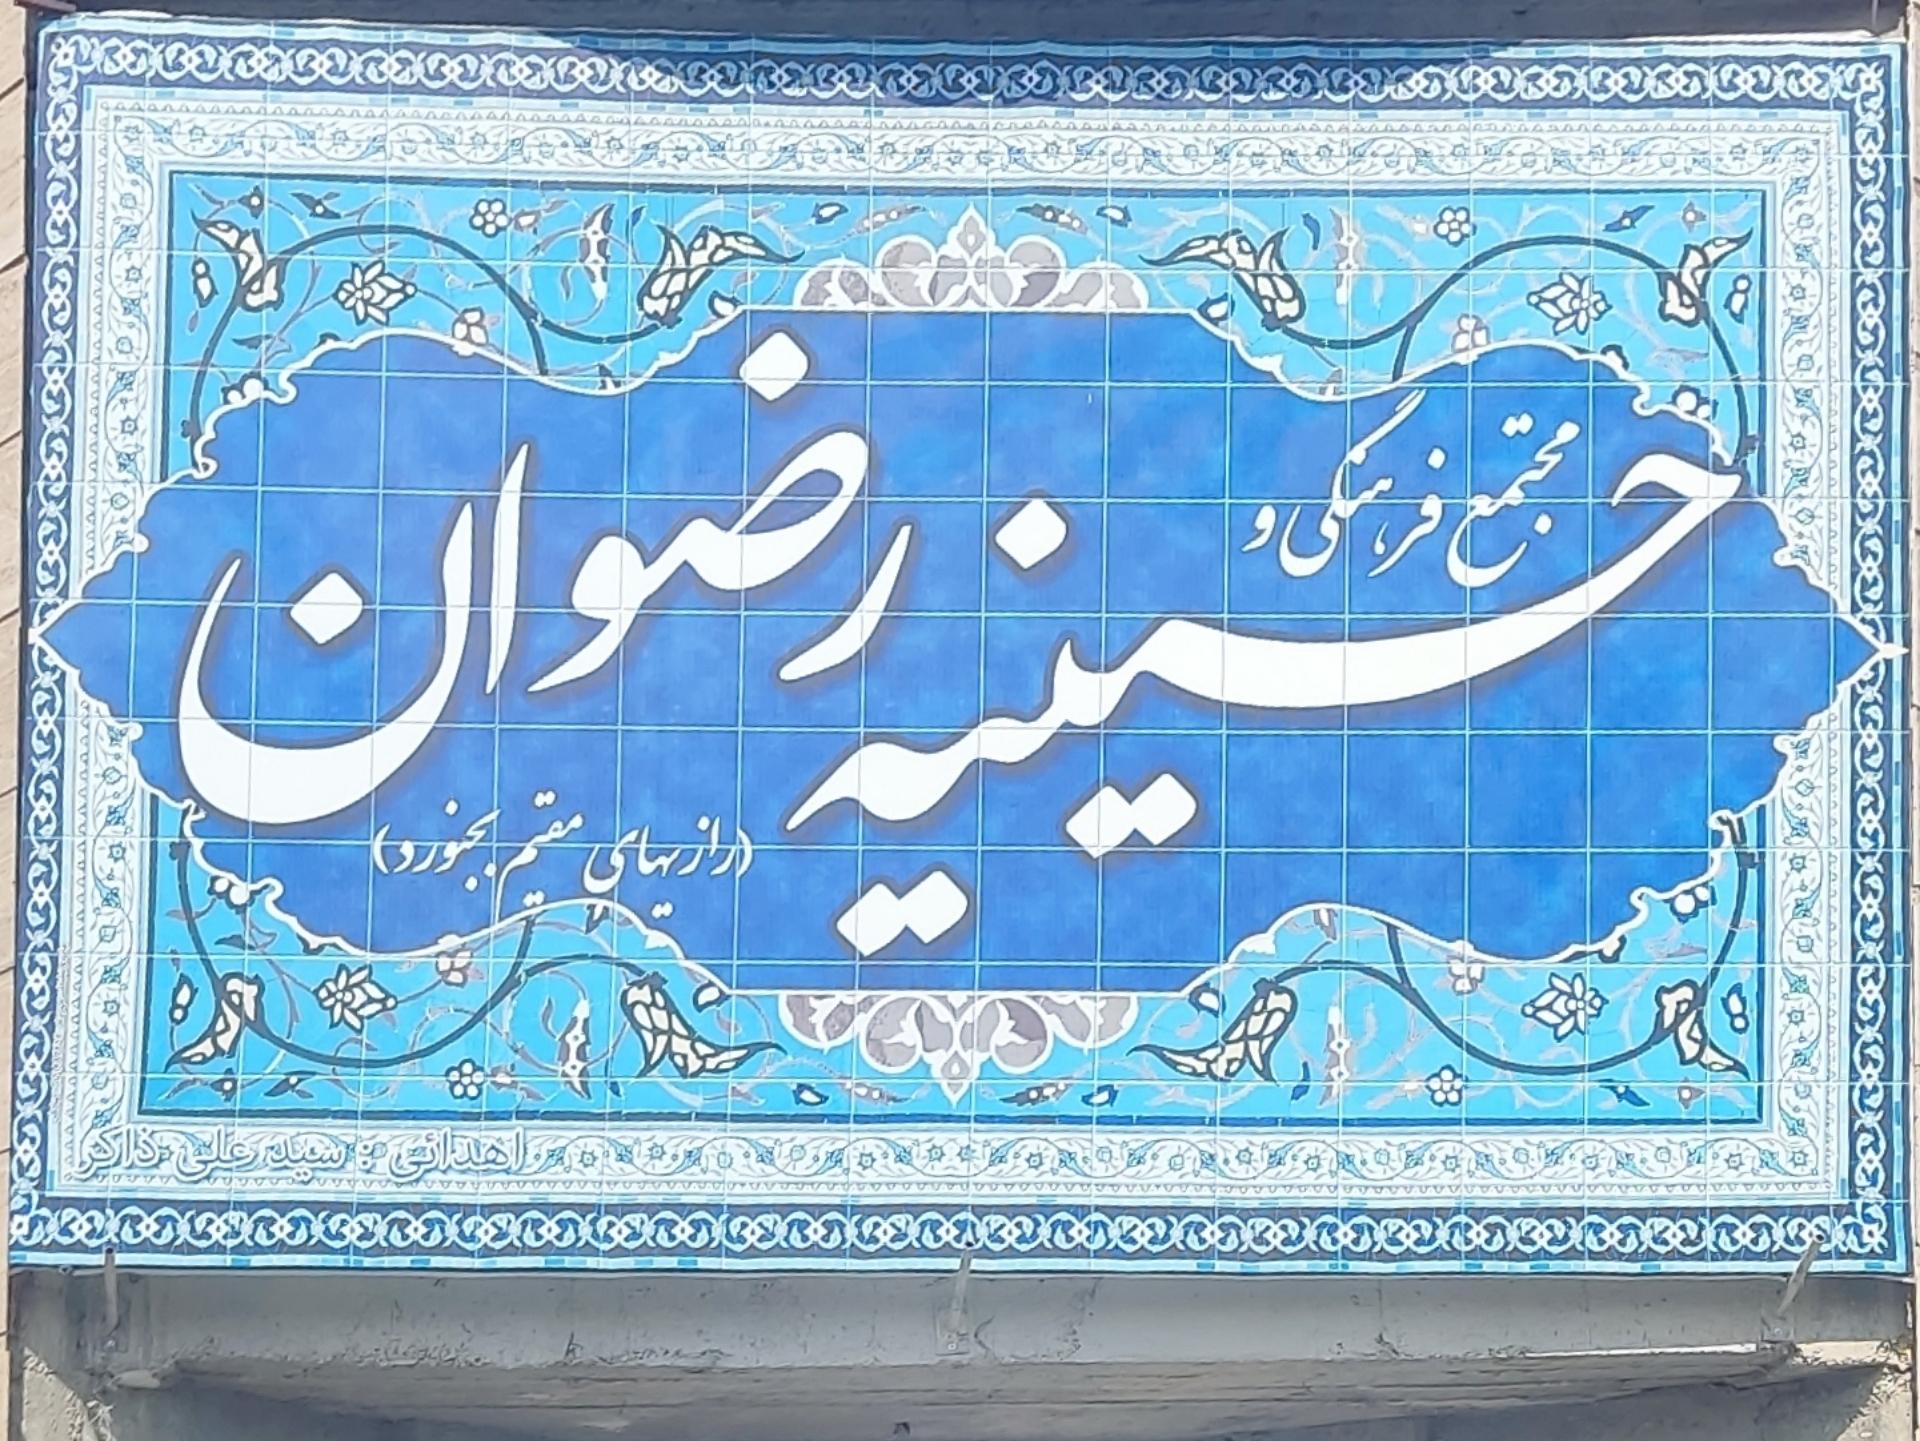 مجتمع فرهنگی و
حسینیه رضوان
(رازیهای مقیم بجنورد)
اهدائی : سید علی ذاکر